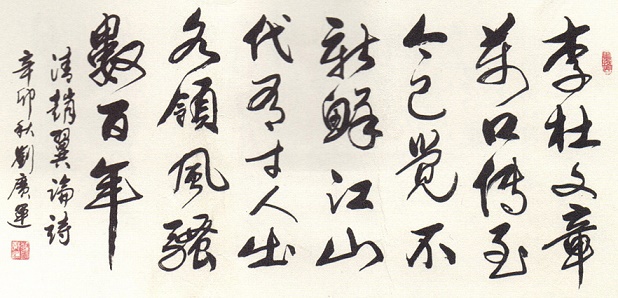 李杜文章
萬口傳至
今已覺不
新鮮江山
代有才人出
各領風騷
數百年
清趙翼論詩
辛卯秋劉廣運